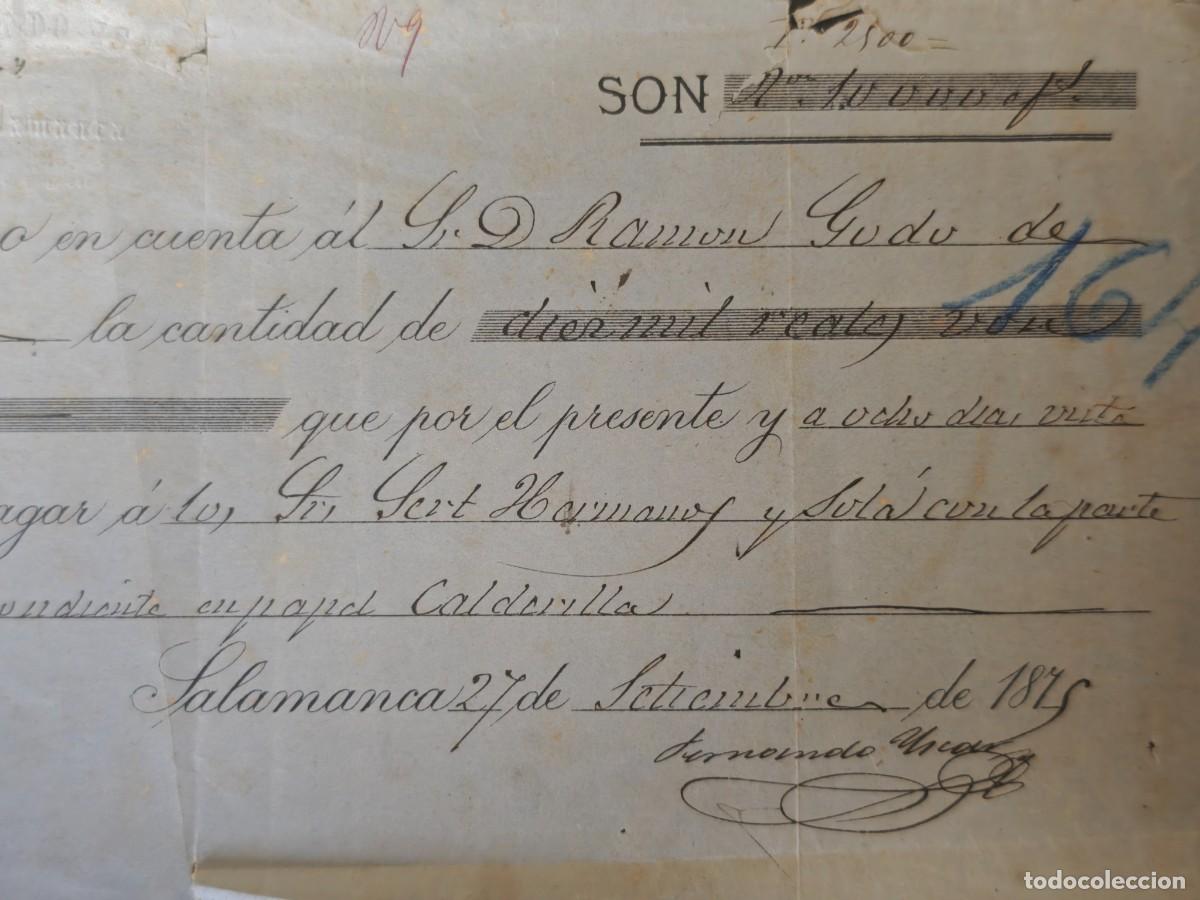 Nº 9
2500=
SON Rvn 10000 ef.s
lamanca
o en cuenta ál Sr. D Ramon Godo de
la cantidad de diez mil reales von
164
que por el presente y a ocho dias vista
agar á los Srs Sert Hermanos y Solá con la parte
ondiente en papel Calderilla
Salamanca 27 de Setiembre de 1875
Fernando
todocoleccion